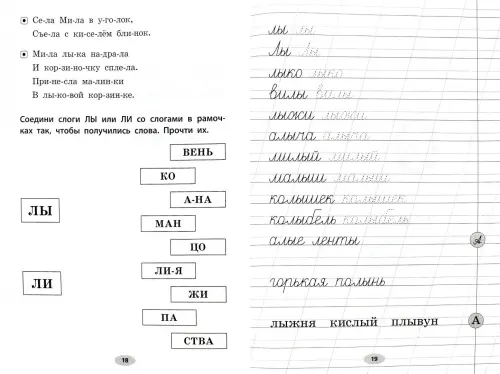 Се-ла Ми-ла в у-го-лок,
Съе-ла с ки-се-лём бли-нок.
Ми-ла лы-ка на-дра-ла
И кор-зи-но-чку спле-ла.
При-не-сла ма-лин-ки
В лы-ко-вой кор-зин-ке.
Соедини слоги ЛЫ или ЛИ со слогами в рамоч-
ках так, чтобы получились слова. Прочти их.
ВЕНЬ
КО
А-НА
ЛЫ
МАН
ЦО
ЛИ-Я
ЛИ
ЖИ
ПА
СТВА
18
лы лы
Лы Лы
лыко лыко
вилы вилы
лыжи лыжи
алыча алыча
милый милый
малыш малыш
колышек колышек
колыбель колыбель
алые ленты
А
горькая полынь
лыжня кислый плывун
А
19